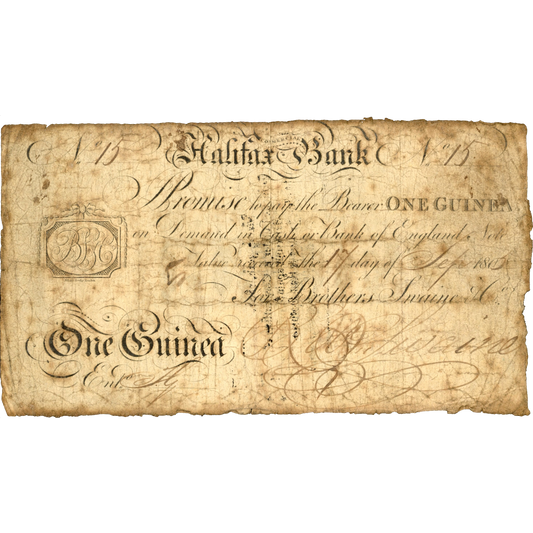 No 15 Halifax Bank No 15
I Promise to pay the Bearer ONE GUINEA
on Demand in Cash or Bank of England Note
Value Received the 17 day of 180
For Brothers Swaine & Co
One Guinea
Entd